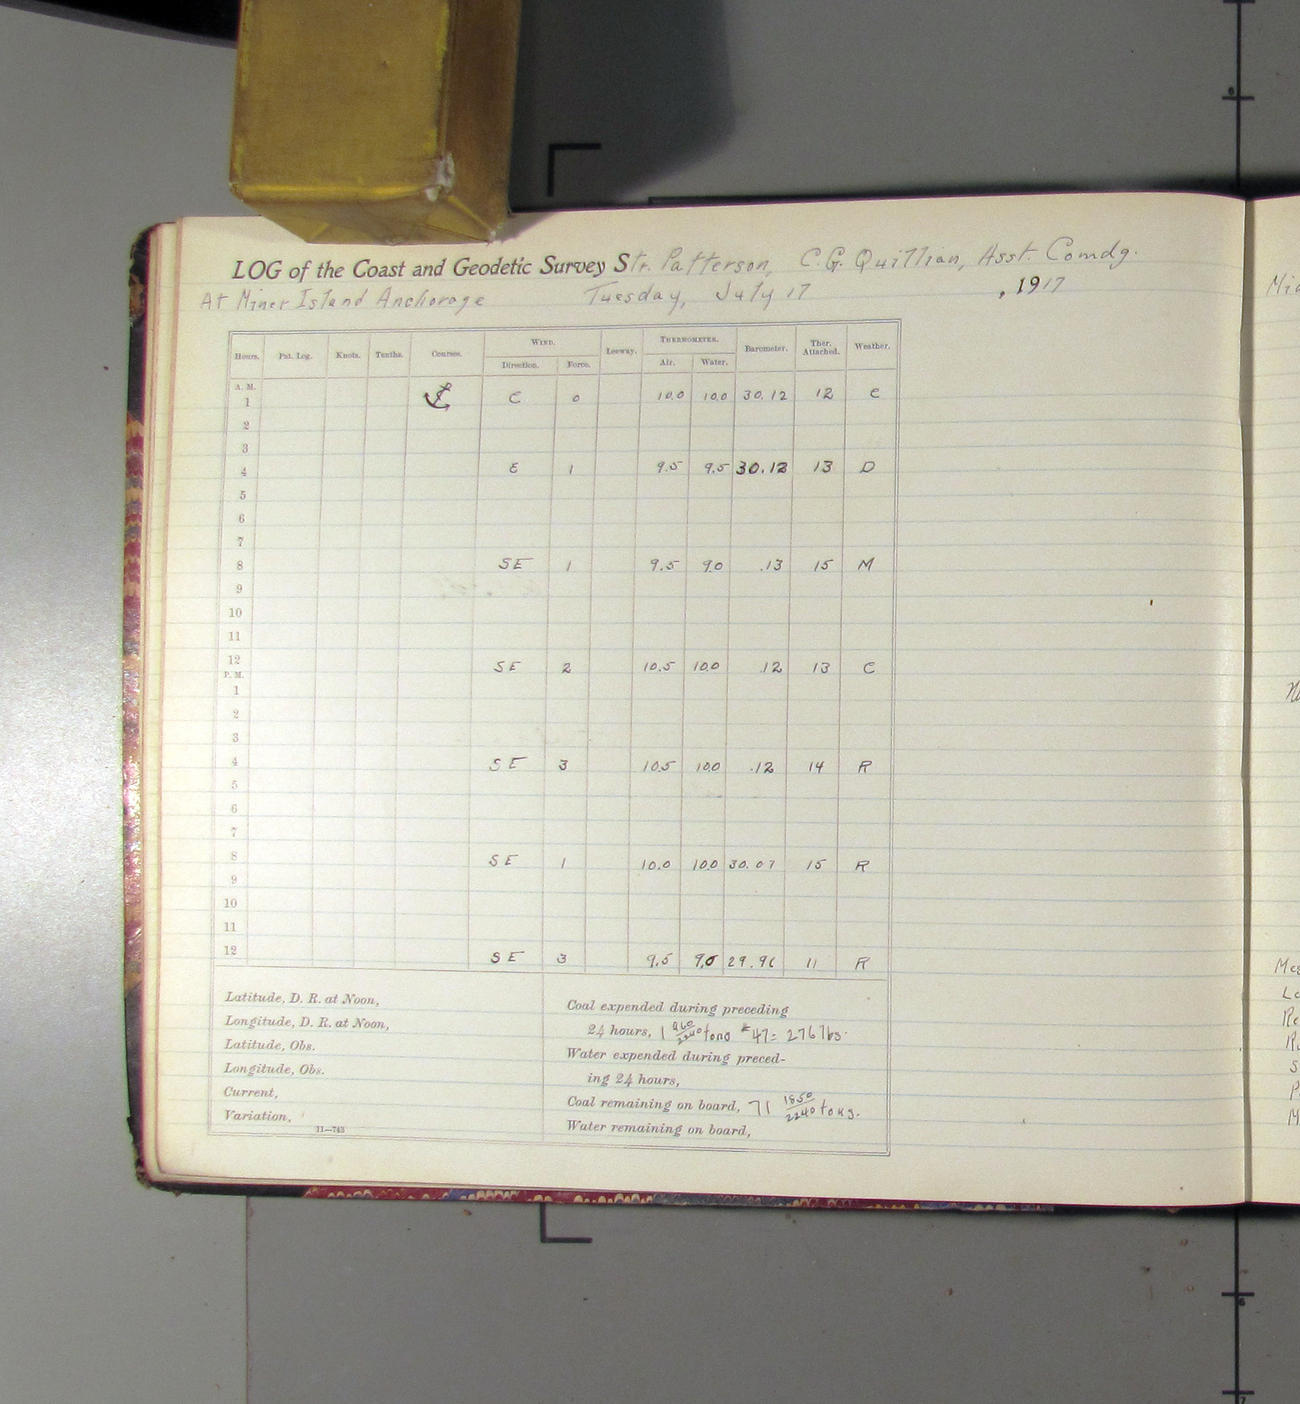 LOG of the Coast and Geodetic Survey Str. Patterson, C.G. Quillian, Asst. Comdg.
At Miner Island Anchorage Tuesday, July 17, 1917
Hours. Pat. Log. Knots. Tenths. Courses. WIND. Leeway. THERMOMETER. Barometer. Ther. Attached. Weather.
Direction. Force. Air. Water.
A. M.
1 C 0 10.0 10.0 30.12 12 C
2
3
4 E 1 9.5 9.5 30.12 13 D
5
6
7
8 SE 1 9.5 9.0 .13 15 M
9
10
11
12 SE 2 10.5 10.0 .12 13 C
P. M.
1
2
3
4 SE 3 10.5 10.0 .12 14 R
5
6
7
8 SE 1 10.0 10.0 30.07 15 R
9
10
11
12 SE 3 9.5 9.0 29.96 11 R
Latitude, D. R. at Noon,
Longitude, D. R. at Noon,
Latitude, Obs.
Longitude, Obs.
Current,
Variation,
11—743
Coal expended during preceding
24 hours, 1 960/2240 tons #47= 276 lbs.
Water expended during preced-
ing 24 hours,
Coal remaining on board, 71 1850/2240 tons.
Water remaining on board,